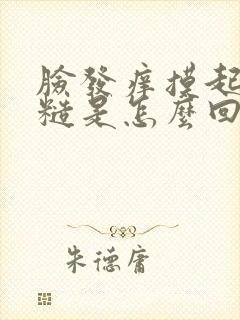 臉發癢摸起
糙是怎麼回
朱德庸